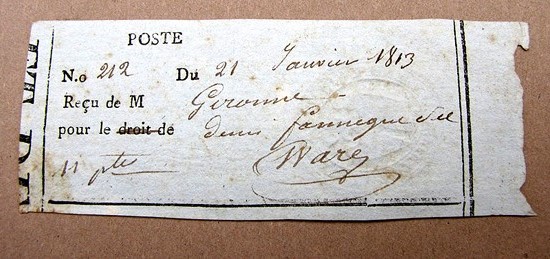 POSTE
N.o 212 Du 21 Janvier 1813
Reçu de M Geronne
pour le droit de demi fannegue de
11 ptes